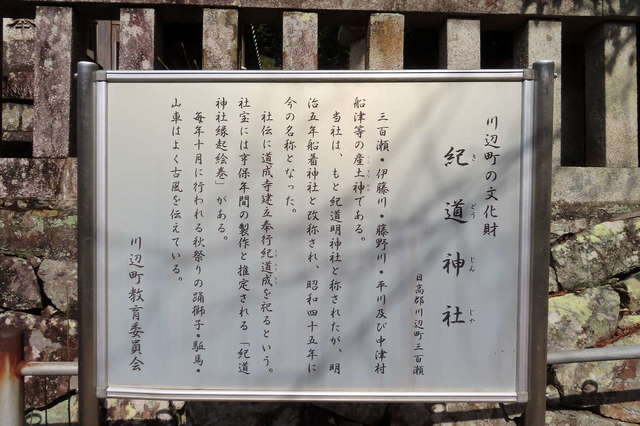 川辺町の文化財
紀道神社
きどうじんじゃ
日高郡川辺町三百瀬
三百瀬・伊藤川・藤野川・平川及び中津村
船津等の産土神である。
当社は、もと紀道明神社と称されたが、明
治五年船着神社と改称され、昭和四十五年に
今の名称となった。
社伝に道成寺建立奉行紀道成を祀るという。
社宝には享保年間の製作と推定される「紀道
神社縁起絵巻」がある。
毎年十月に行われる秋祭りの踊獅子・駈馬・
山車はよく古風を伝えている。
川辺町教育委員会